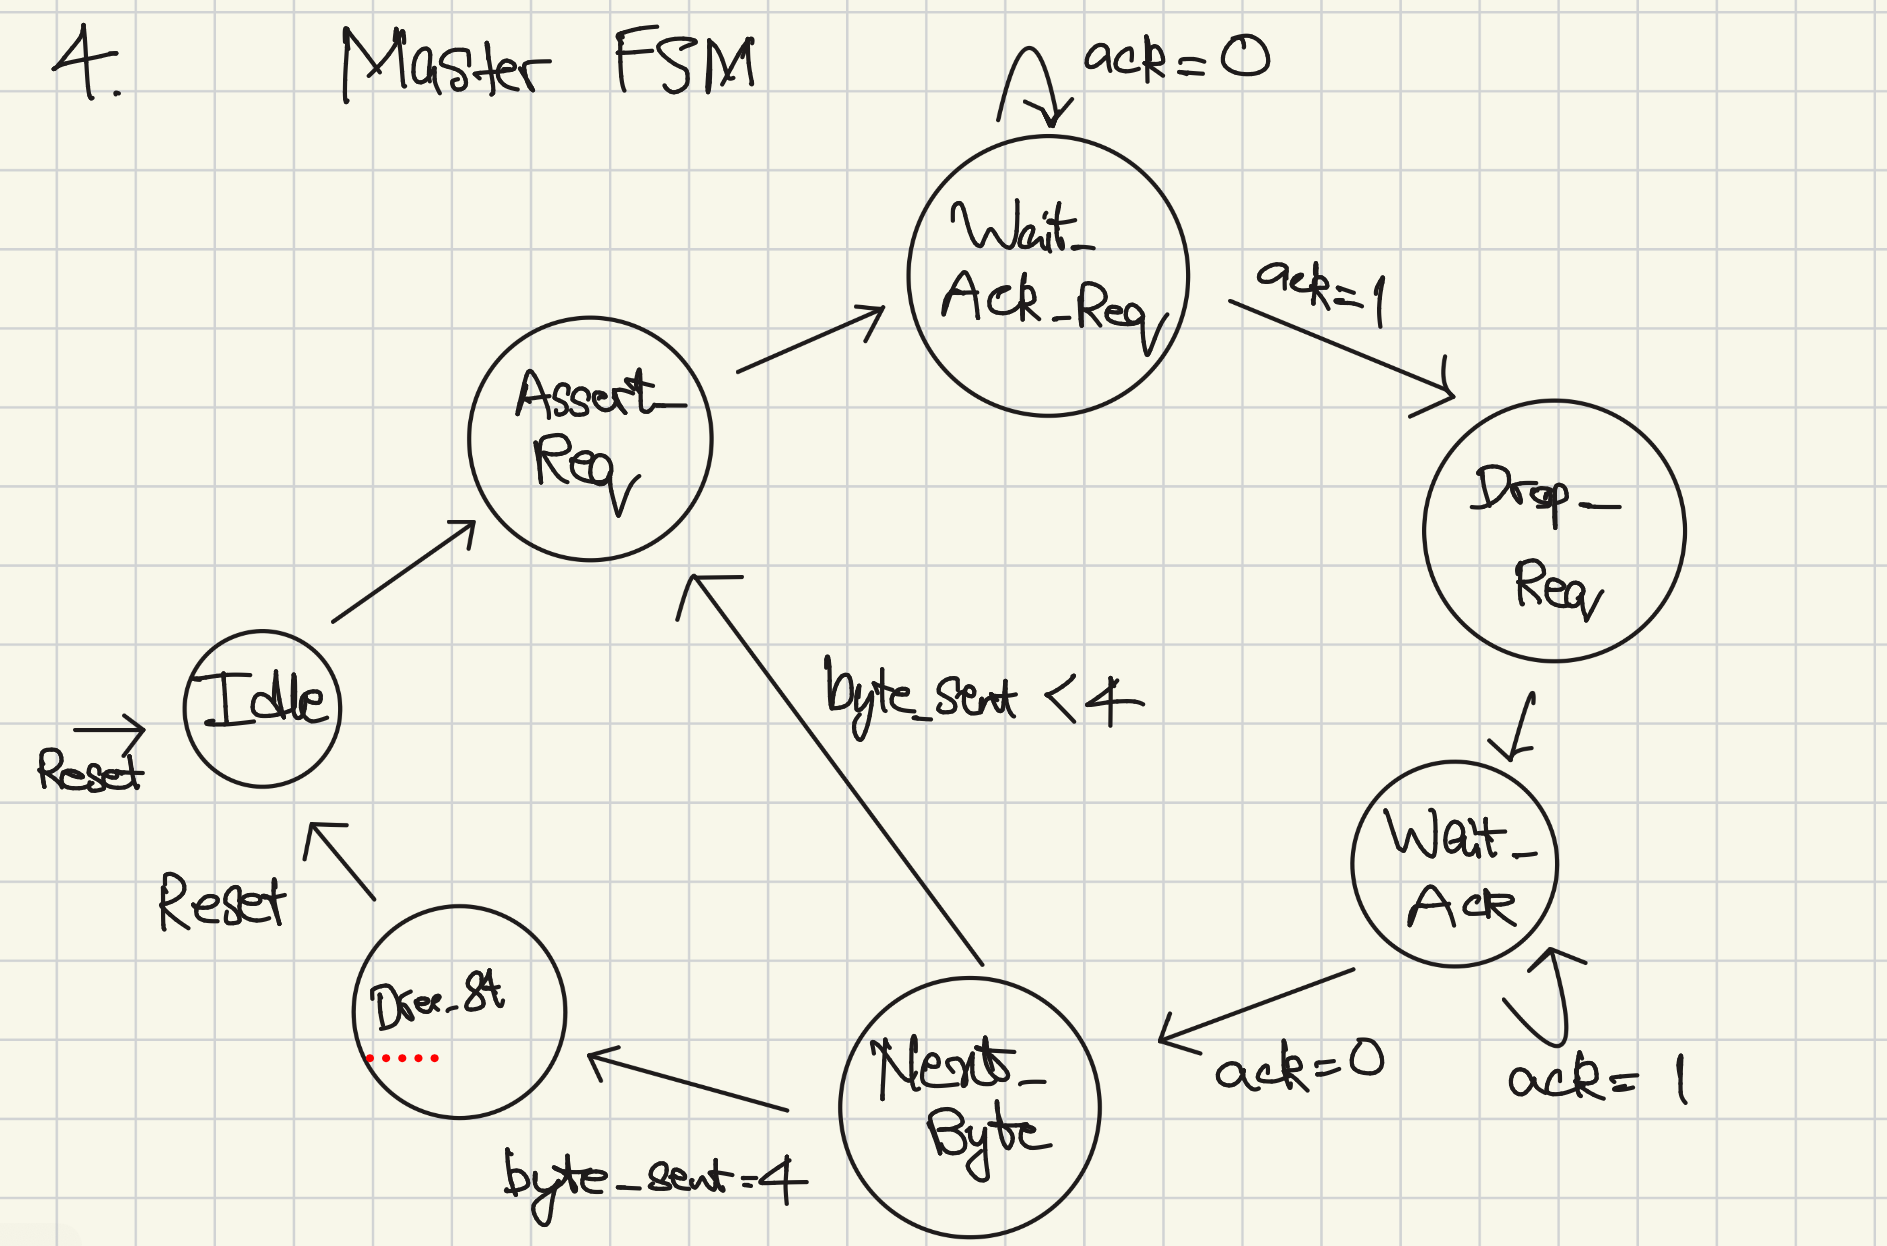 4. Master FSM
ack=0
Wait_
Ack_Req
ack=1
Assert_
Req
Drop_
Req
Idle
Reset
byte_sent <4
Wait_
Ack
Reset
ack=0
ack=1
Next_
Byte
byte_sent=4